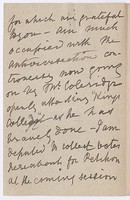 for which am grateful
to you – Am much
occupied with the
antivivisection con-
troversy now going
on by Mr Coleridge
openly attacking Kings
College as he has
bravely done – I am
deputed to collect votes
at the coming session